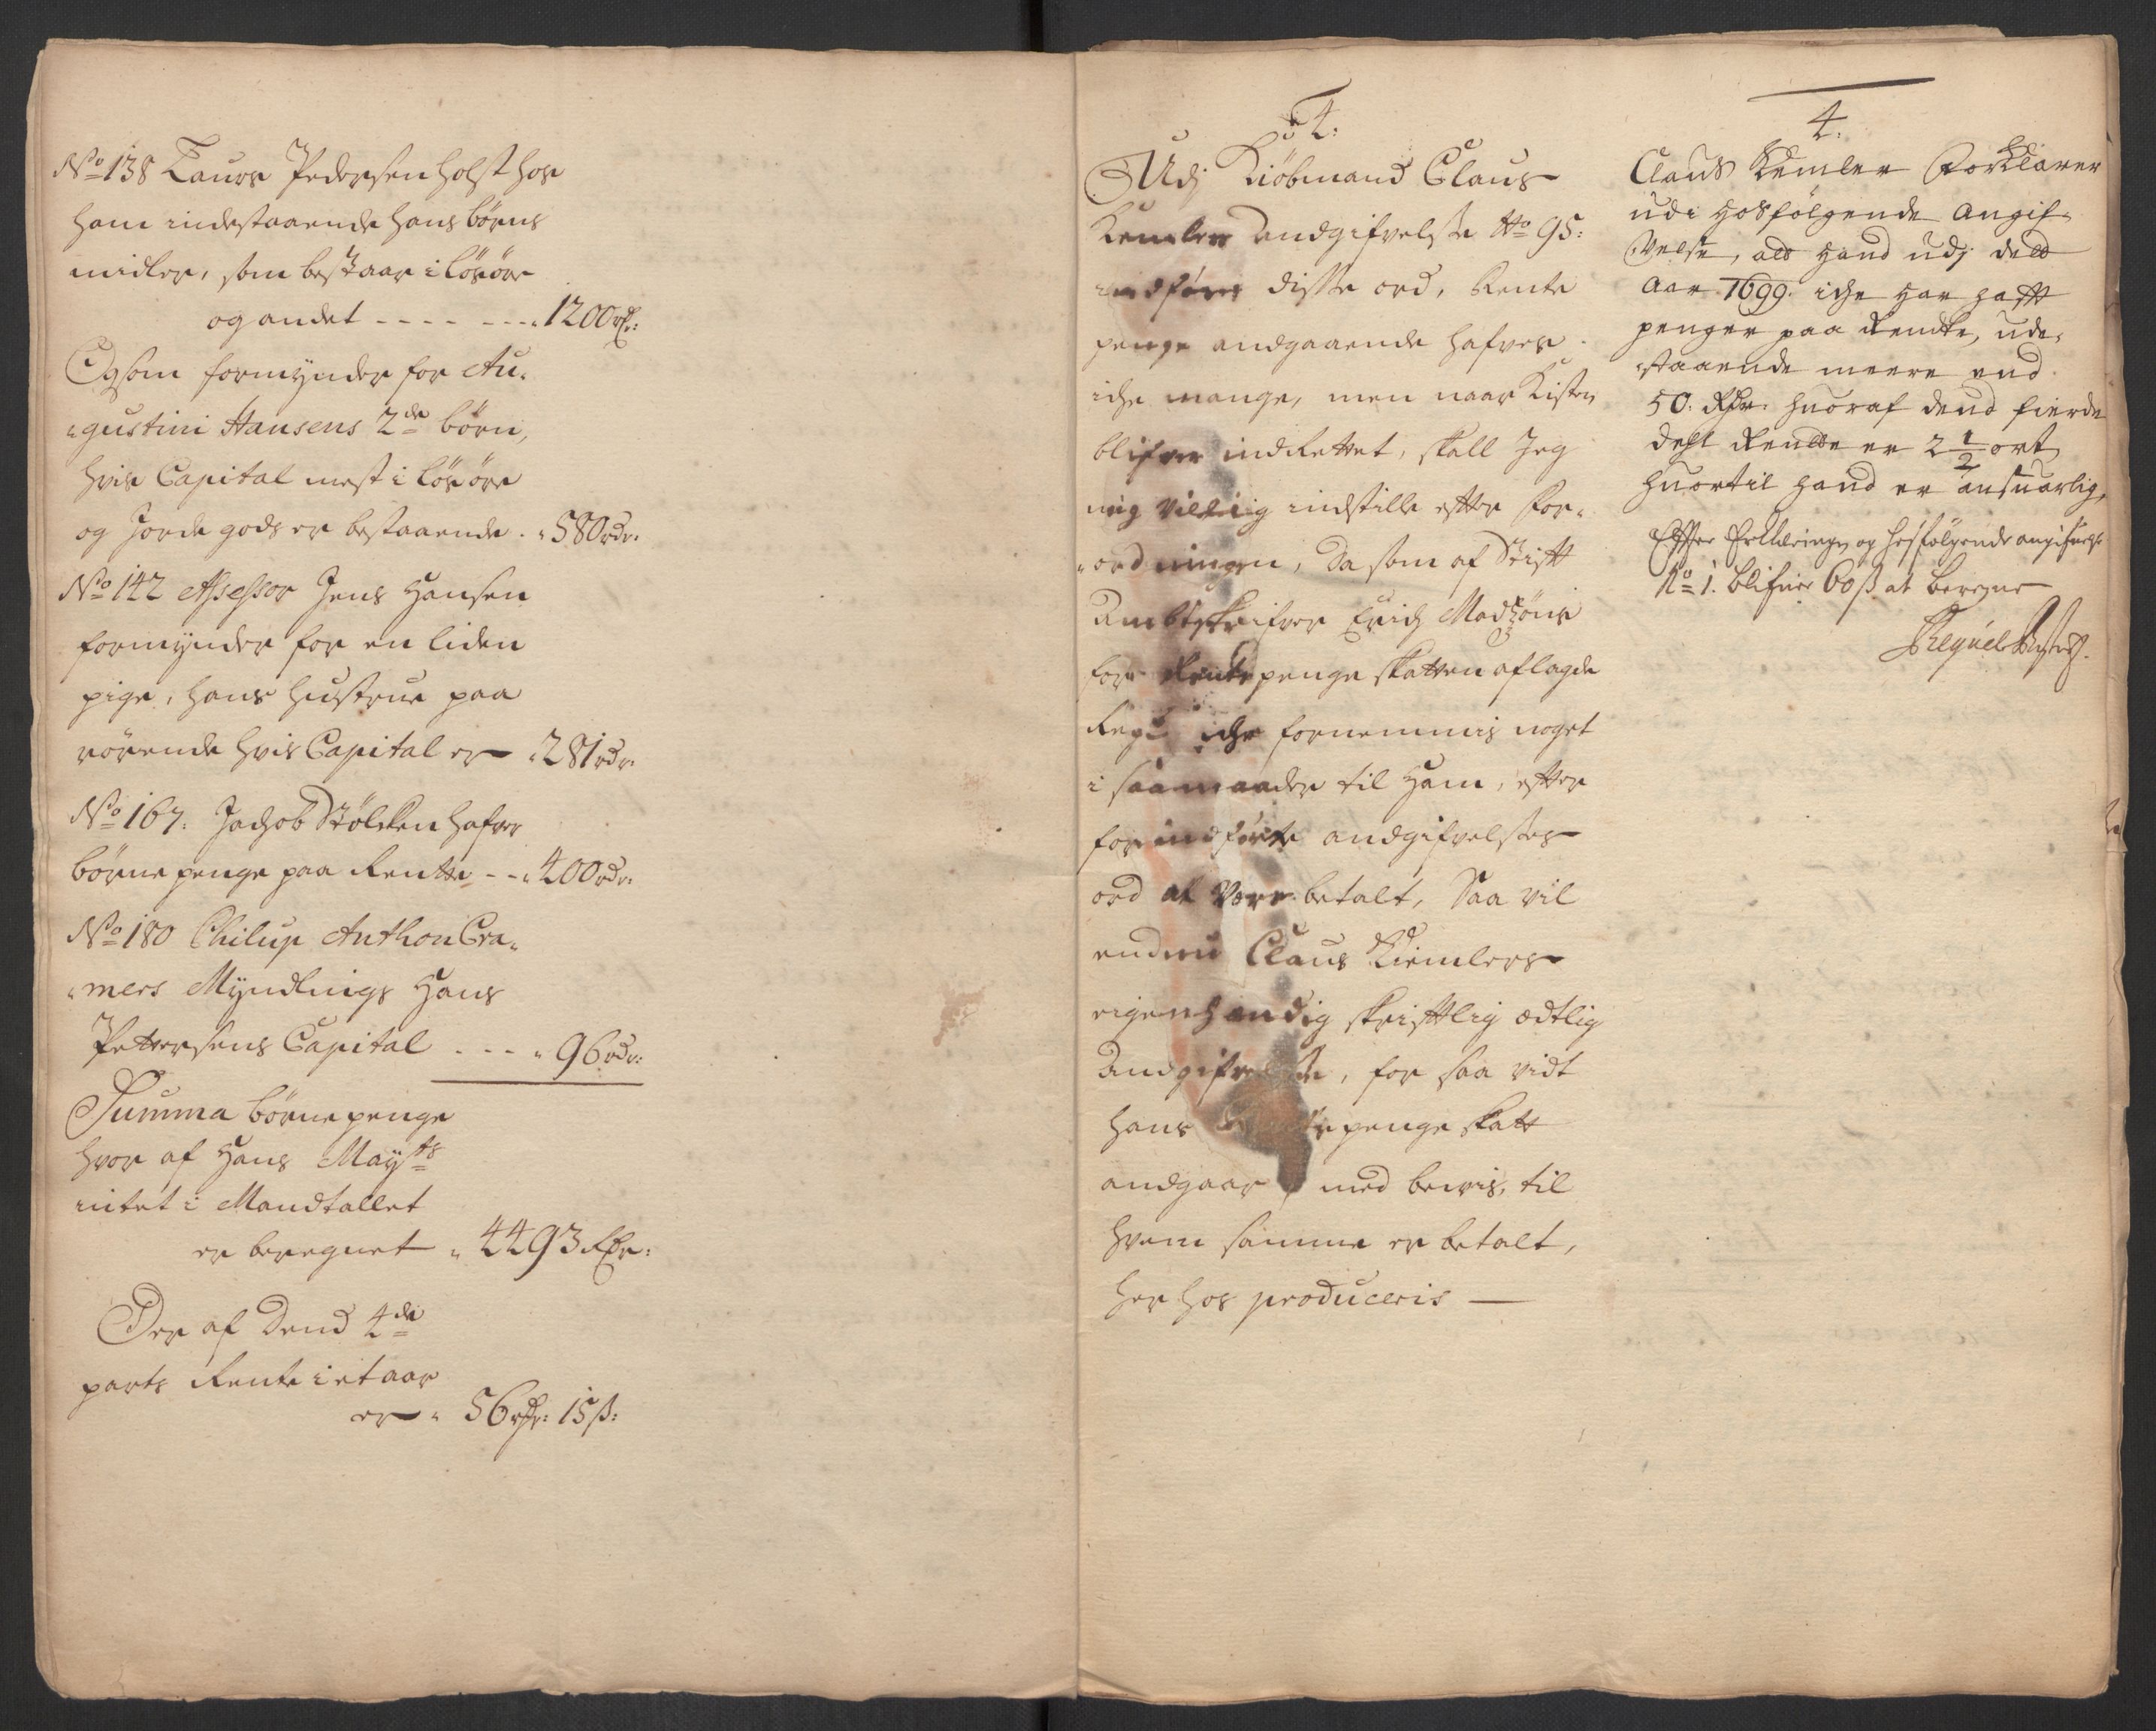 No 138 Laurs Pedersen holst hos
ham indestaaende hans börns
midler, som bestaar i lösöre
og andet - - - - - - - 1200 rdr:
Og som formynder for Au-
gustini Hansens 2de börn,
hvis Capital mest i lösöre
og Jorde gods er bestaaende . 580 rdr.
No 142 Assessor Jens Hansen
formynder for en liden
pige, hans hustrue paa
rörende hvis Capital er 281 rdr.
No 167. Jachob Stölcken hafver
börne penge paa Rentte - - 400 rdr.
No 180 Philup Anthon Cra-
mers Myndlings Hans
Pettersens Capital . - - - 96 rdr:
Summa börne penge
hvor af Hans Mayts
intet i Mandtallet
er beregnet 4493 Rdr:
Der af Dend 4de
parts Rente i et aar
er 56 rdr: 15 ß:
4.
Udj Kiöbmand Claus
Kemlers Andgifvelse No 95:
indföres disse ord, Rente
penge andgaaende hafves
iche mange, men naar Listen
blifver indRettet, skall Jeg
mig villig indstille efter for-
ordningen, Da som af Stift
Ambtskrifver Erich Madzöns
for Rentepenge skatten aflagde
Regn: iche fornemmis noget
i saa maader til Ham, efter
for indförte andgifvelses
ord at være betalt, Saa vil
endnu Claus Kiemlers
eigenhændig skrifttlig ædtlig
Andgifvelse, for saa vidt
hans Rentepenge skatt
andgaar med bevis, til
hvem samme er betalt,
her hos produceris
4.
Claus Kemler Forklarer
udi Hosfölgende Angif-
velse, att Hand udj dett
Aar 1699. iche Har hafft
penger paa Rentte, ude-
staaende meere end
50. Rdr. huoraf dend fierde
deel Rentte er 2 1/2 ort
huortil hand er ansuarlig,
Effter Erklæringen og hosfölgende angifvelse
No 1. blifuer 60 ß at beregne